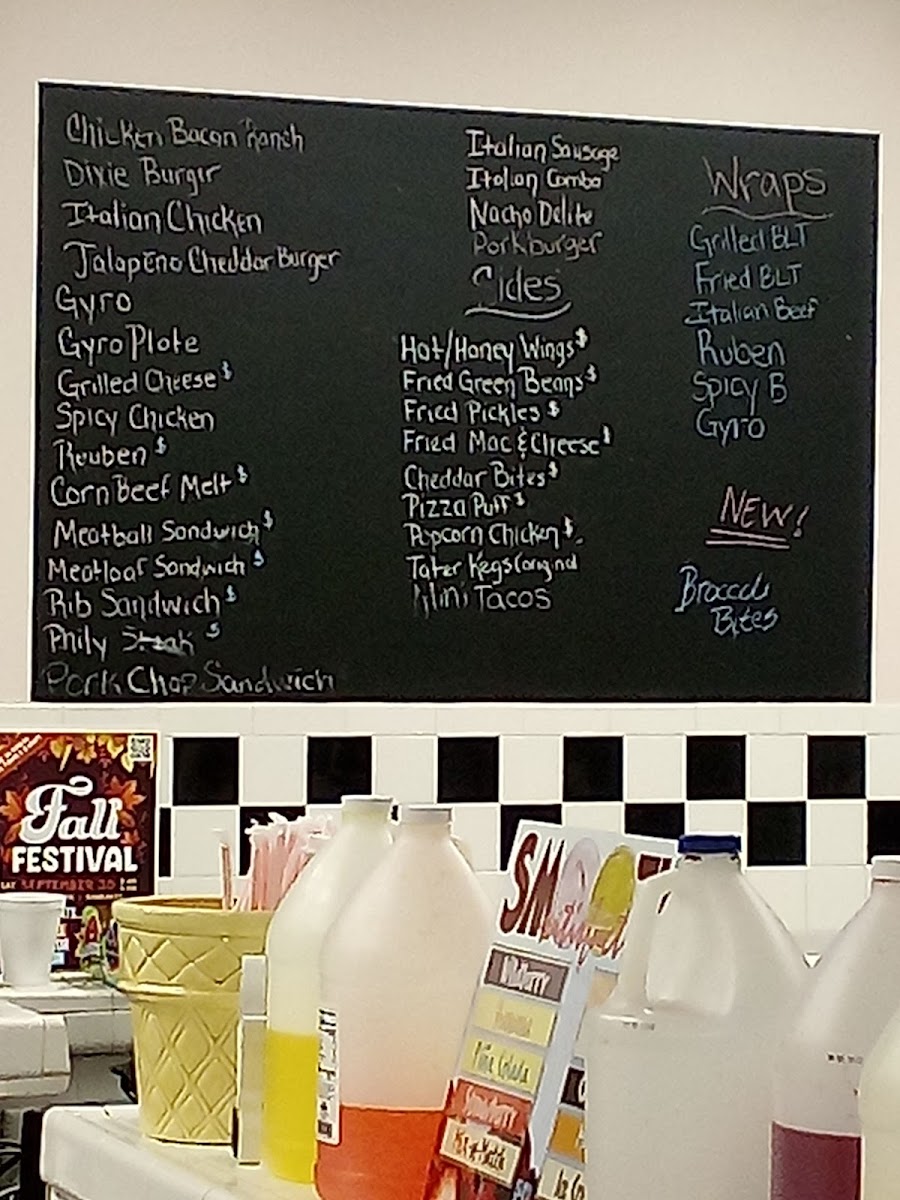 Chicken Bacon Ranch
Dixie Burger
Italian Chicken
Jalapeno Cheddar Burger
Gyro
Gyro Plate
Grilled Cheese $
Spicy Chicken
Reuben $
Corn Beef Melt $
Meatball Sandwich $
Meatloaf Sandwich $
Rib Sandwich $
Phily Steak $
Pork Chop Sandwich
Italian Sausage
Italian Combo
Nacho Delite
Porkburger
Sides
Hot/Honey Wings $
Fried Green Beans $
Fried Pickles $
Fried Mac & Cheese $
Cheddar Bites $
Pizza Puff $
Popcorn Chicken $
Tater Kegs (original
Mini Tacos
Wraps
Grilled BLT
Fried BLT
Italian Beef
Ruben
Spicy B
Gyro
NEW!
Broccoli
Bites
Fall
FESTIVAL
SAT SEPTEMBER 30
Piña Colada
Strawberry
Mix-n-Match